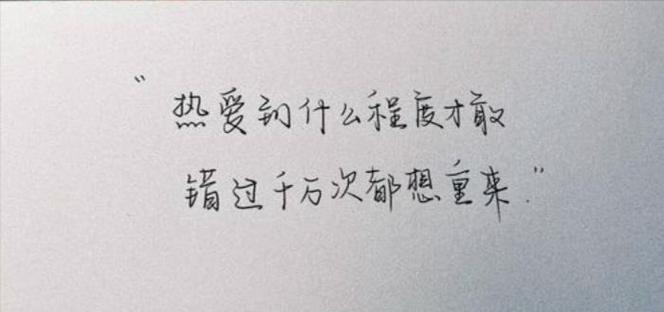 “热爱到什么程度才敢
错过千万次都想重来”